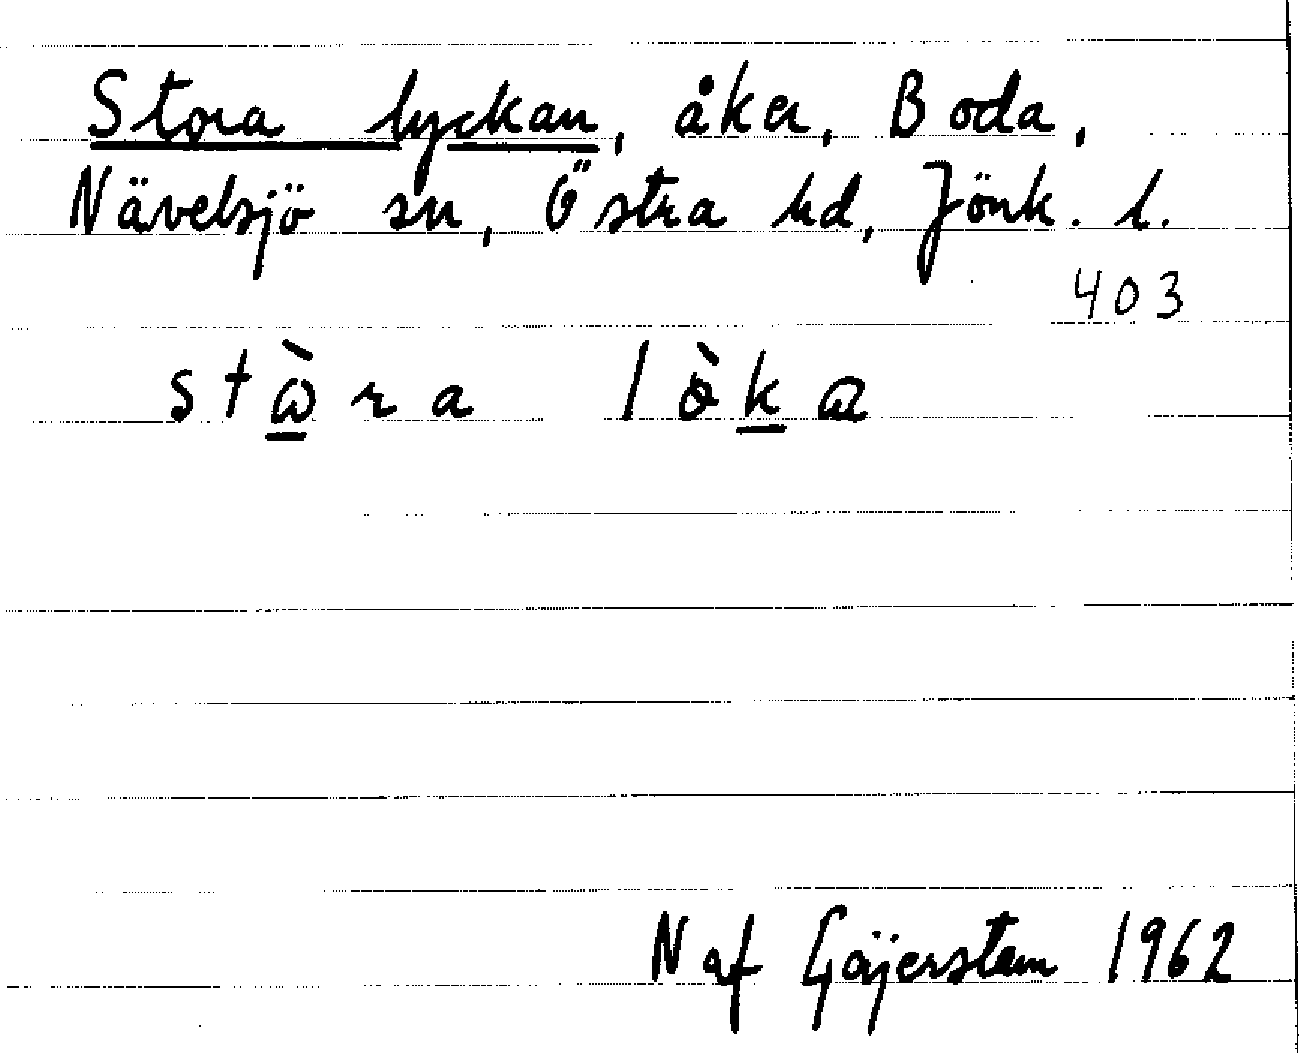 Stora lyckan, åker, Boda,
Nävelsjö sn, Östra hd, Jönk. l.
403
stὼ̲ra lòk̲a
N af Gäjerstam 1962